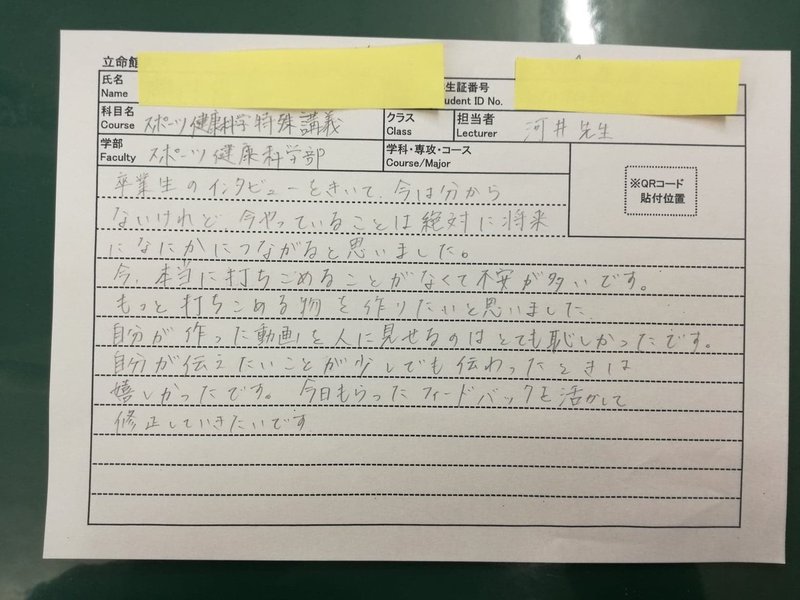 立命館
氏名
Name
生証番号
tudent ID No.
科目名
Course
スポーツ健康科学特殊講義
クラス
Class
担当者
Lecturer
河井先生
学部
Faculty
スポーツ健康科学部
学科・専攻・コース
Course/Major
※QRコード
貼付位置
卒業生のインタビューをきいて、今は分から
ないけれど、今やっていることは絶対に将来
になにかにつながると思いました。
今、本当に打ちこめることがなくて不安が多いです。
もっと打ちこめる物を作りたいと思いました
自分が作った動画を人に見せるのはとても恥しかったです。
自分が伝えたいことが少しでも伝わったときは
嬉しかったです。今日もらったフィードバックを活かして
修正していきたいです